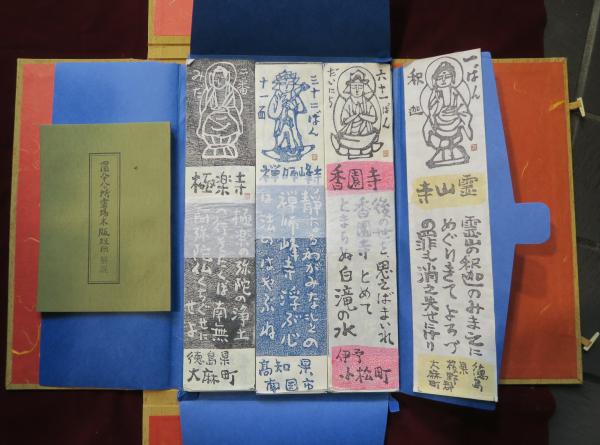 四国八十八ヶ所霊場木版短冊 解説
一ばん
釈迦
霊山寺
霊山の釈迦のみまえに
めぐりきてよろづ
の罪も消え失せにけり
徳島県
板野郡
大麻町
六十一ばん
だいにち
香園寺
後の世を思えばまいれ
香園寺とめて
とまらぬ白滝の水
伊予
小松町
三十二ばん
十一面
禅師峰寺
静かなるわがみなもとの
禅師峰寺 浮ぶ心
は法のはやぶね
高知県
南国市
二番
みだ
極楽寺
極楽の弥陀の浄土
へ行きたくば南無
阿弥陀仏くちぐせに
せよ
徳島県
大麻町